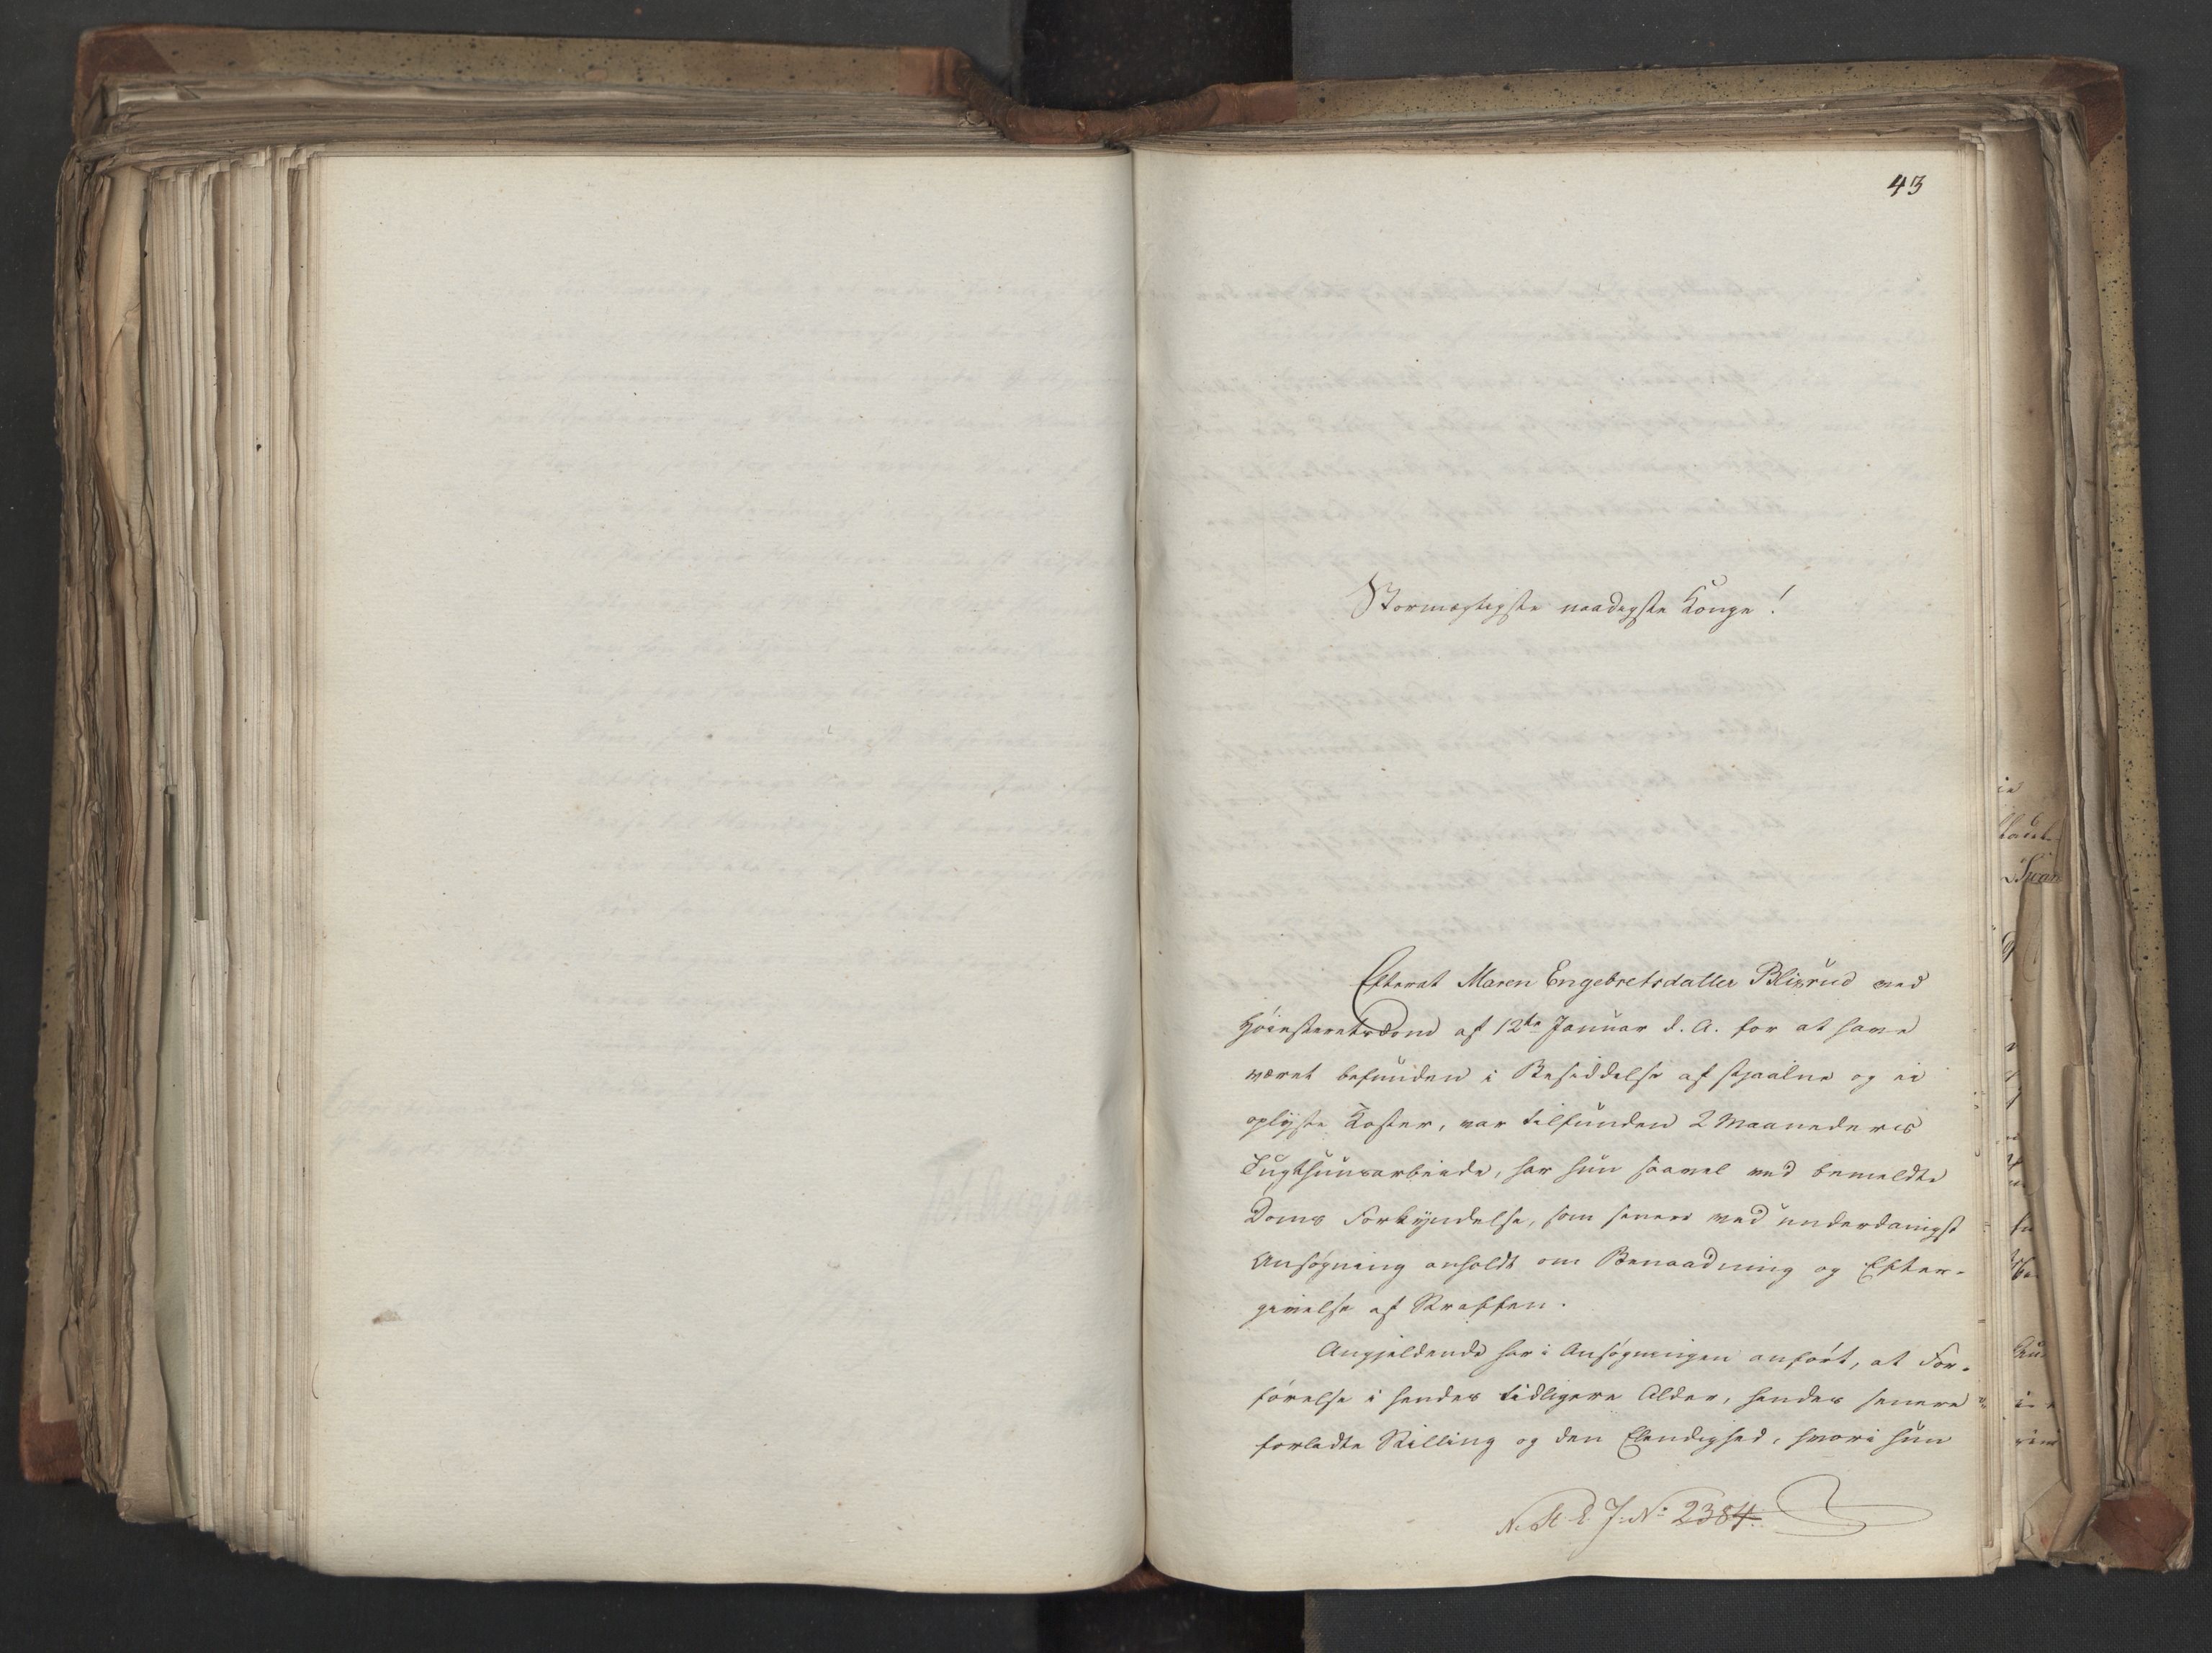 43
Stormægtigste naadigste Konge!
Efterat Maren Engebretsdatter Blixrud ved
Høiesteretsdom af 12te Januar d. A. for at have
været befunden i Besiddelse af stjaalne og ei
oplyste Koster, var tilfunden 2 Maaneders
Tugthuusarbeide, har hun saavel ved bemeldte
Doms Forkyndelse, som senere ved underdanigst
Ansøgning anholdt om Benaadning og Efter-
givelse af Straffen.
Angjeldende har i Ansøgningen anført, at For-
førelse i hendes tidligere Alder, hendes senere
forladte Stilling og den Elendighed, hvori hun
J. No 2384.